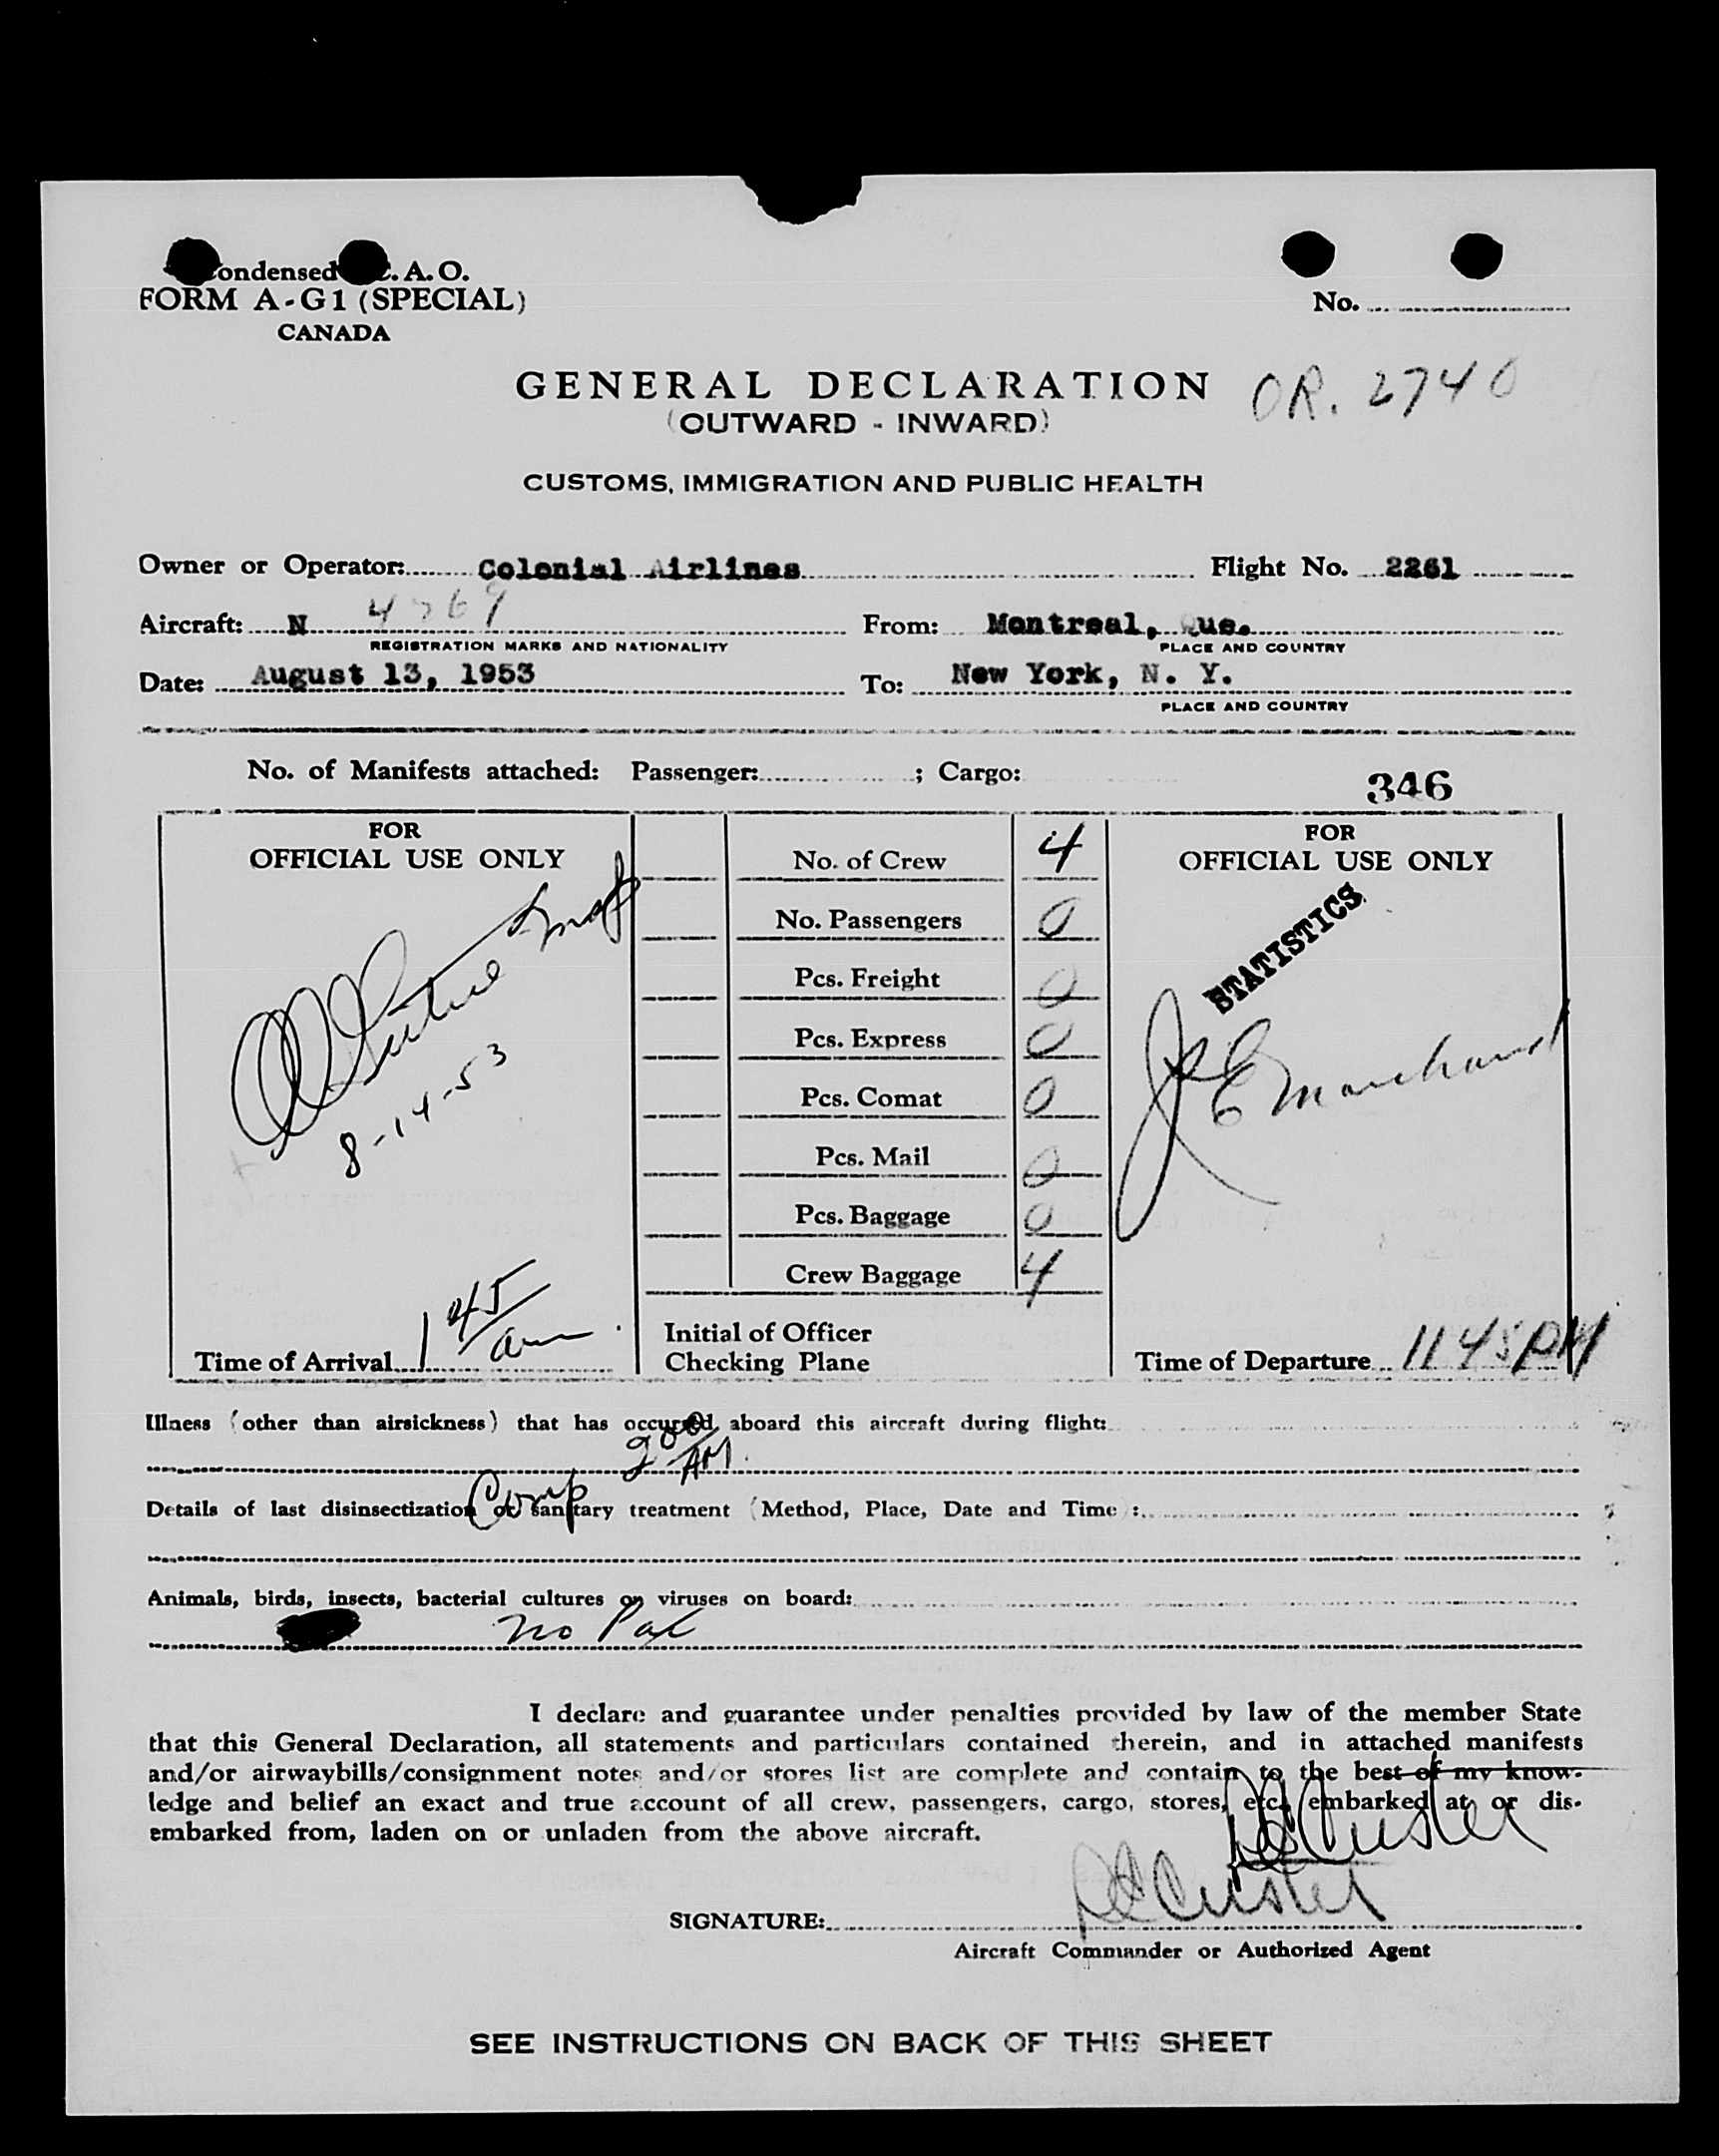 ondensed .A.O.
FORM A-G1 (SPECIAL)
CANADA
No.
GENERAL DECLARATION
OR. 2740
(OUTWARD - INWARD)
CUSTOMS, IMMIGRATION AND PUBLIC HEALTH
Owner or Operator: Colonial Airlines Flight No. 2261
Aircraft: N From: Montreal, Que.
REGISTRATION MARKS AND NATIONALITY PLACE AND COUNTRY
Date: August 13, 1953 To: New York, N. Y.
PLACE AND COUNTRY
No. of Manifests attached: Passenger: ; Cargo:
346
FOR
OFFICIAL USE ONLY
8-14-53
Time of Arrival 1 45 am
No. of Crew 4
No. Passengers 0
Pcs. Freight 0
Pcs. Express 0
Pcs. Comat 0
Pcs. Mail 0
Pcs. Baggage 0
Crew Baggage 4
Initial of Officer
Checking Plane
FOR
OFFICIAL USE ONLY
STATISTICS
Marchand
Time of Departure 11 45 PM
Illness (other than airsickness) that has occurred aboard this aircraft during flight:
200 AM
Comp
Details of last disinsectization or sanitary treatment (Method, Place, Date and Time):
Animals, birds, insects, bacterial cultures or viruses on board:
No Pax
I declare and guarantee under penalties provided by law of the member State
that this General Declaration, all statements and particulars contained therein, and in attached manifests
and/or airwaybills/consignment notes and/or stores list are complete and contain to the best of my know-
ledge and belief an exact and true account of all crew, passengers, cargo, stores, etc. embarked at or dis-
embarked from, laden on or unladen from the above aircraft.
Custer
SIGNATURE: Custer
Aircraft Commander or Authorized Agent
SEE INSTRUCTIONS ON BACK OF THIS SHEET